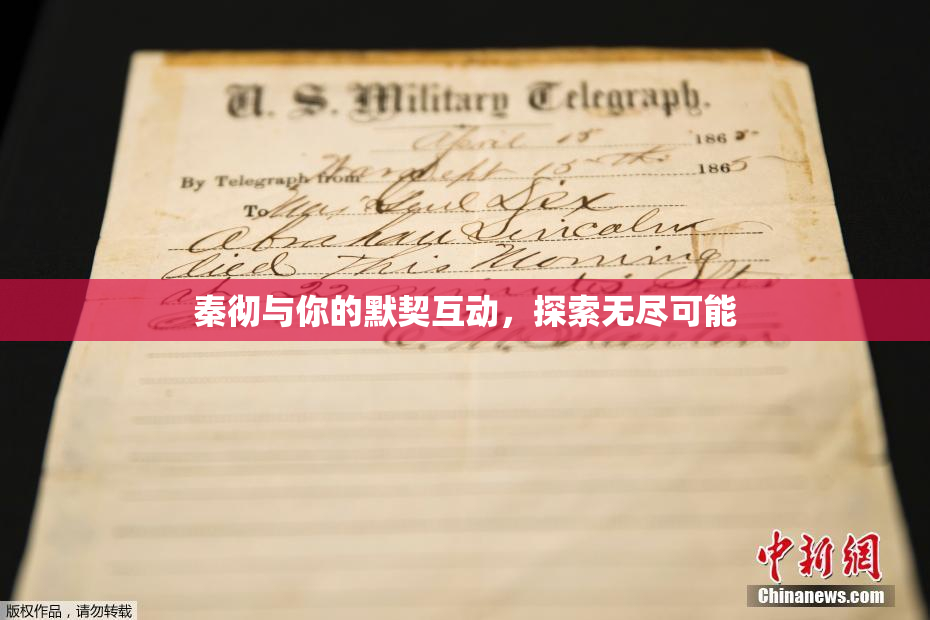 U. S. Military Telegraph.
April 15 1865
By Telegraph from War Dept 15th 1865
To Maj Genl Dix
Abraham Lincoln
died This Morning
at 22 minutes after
秦彻与你的默契互动，探索无尽可能
中新网
Chinanews.com
版权作品，请勿转载